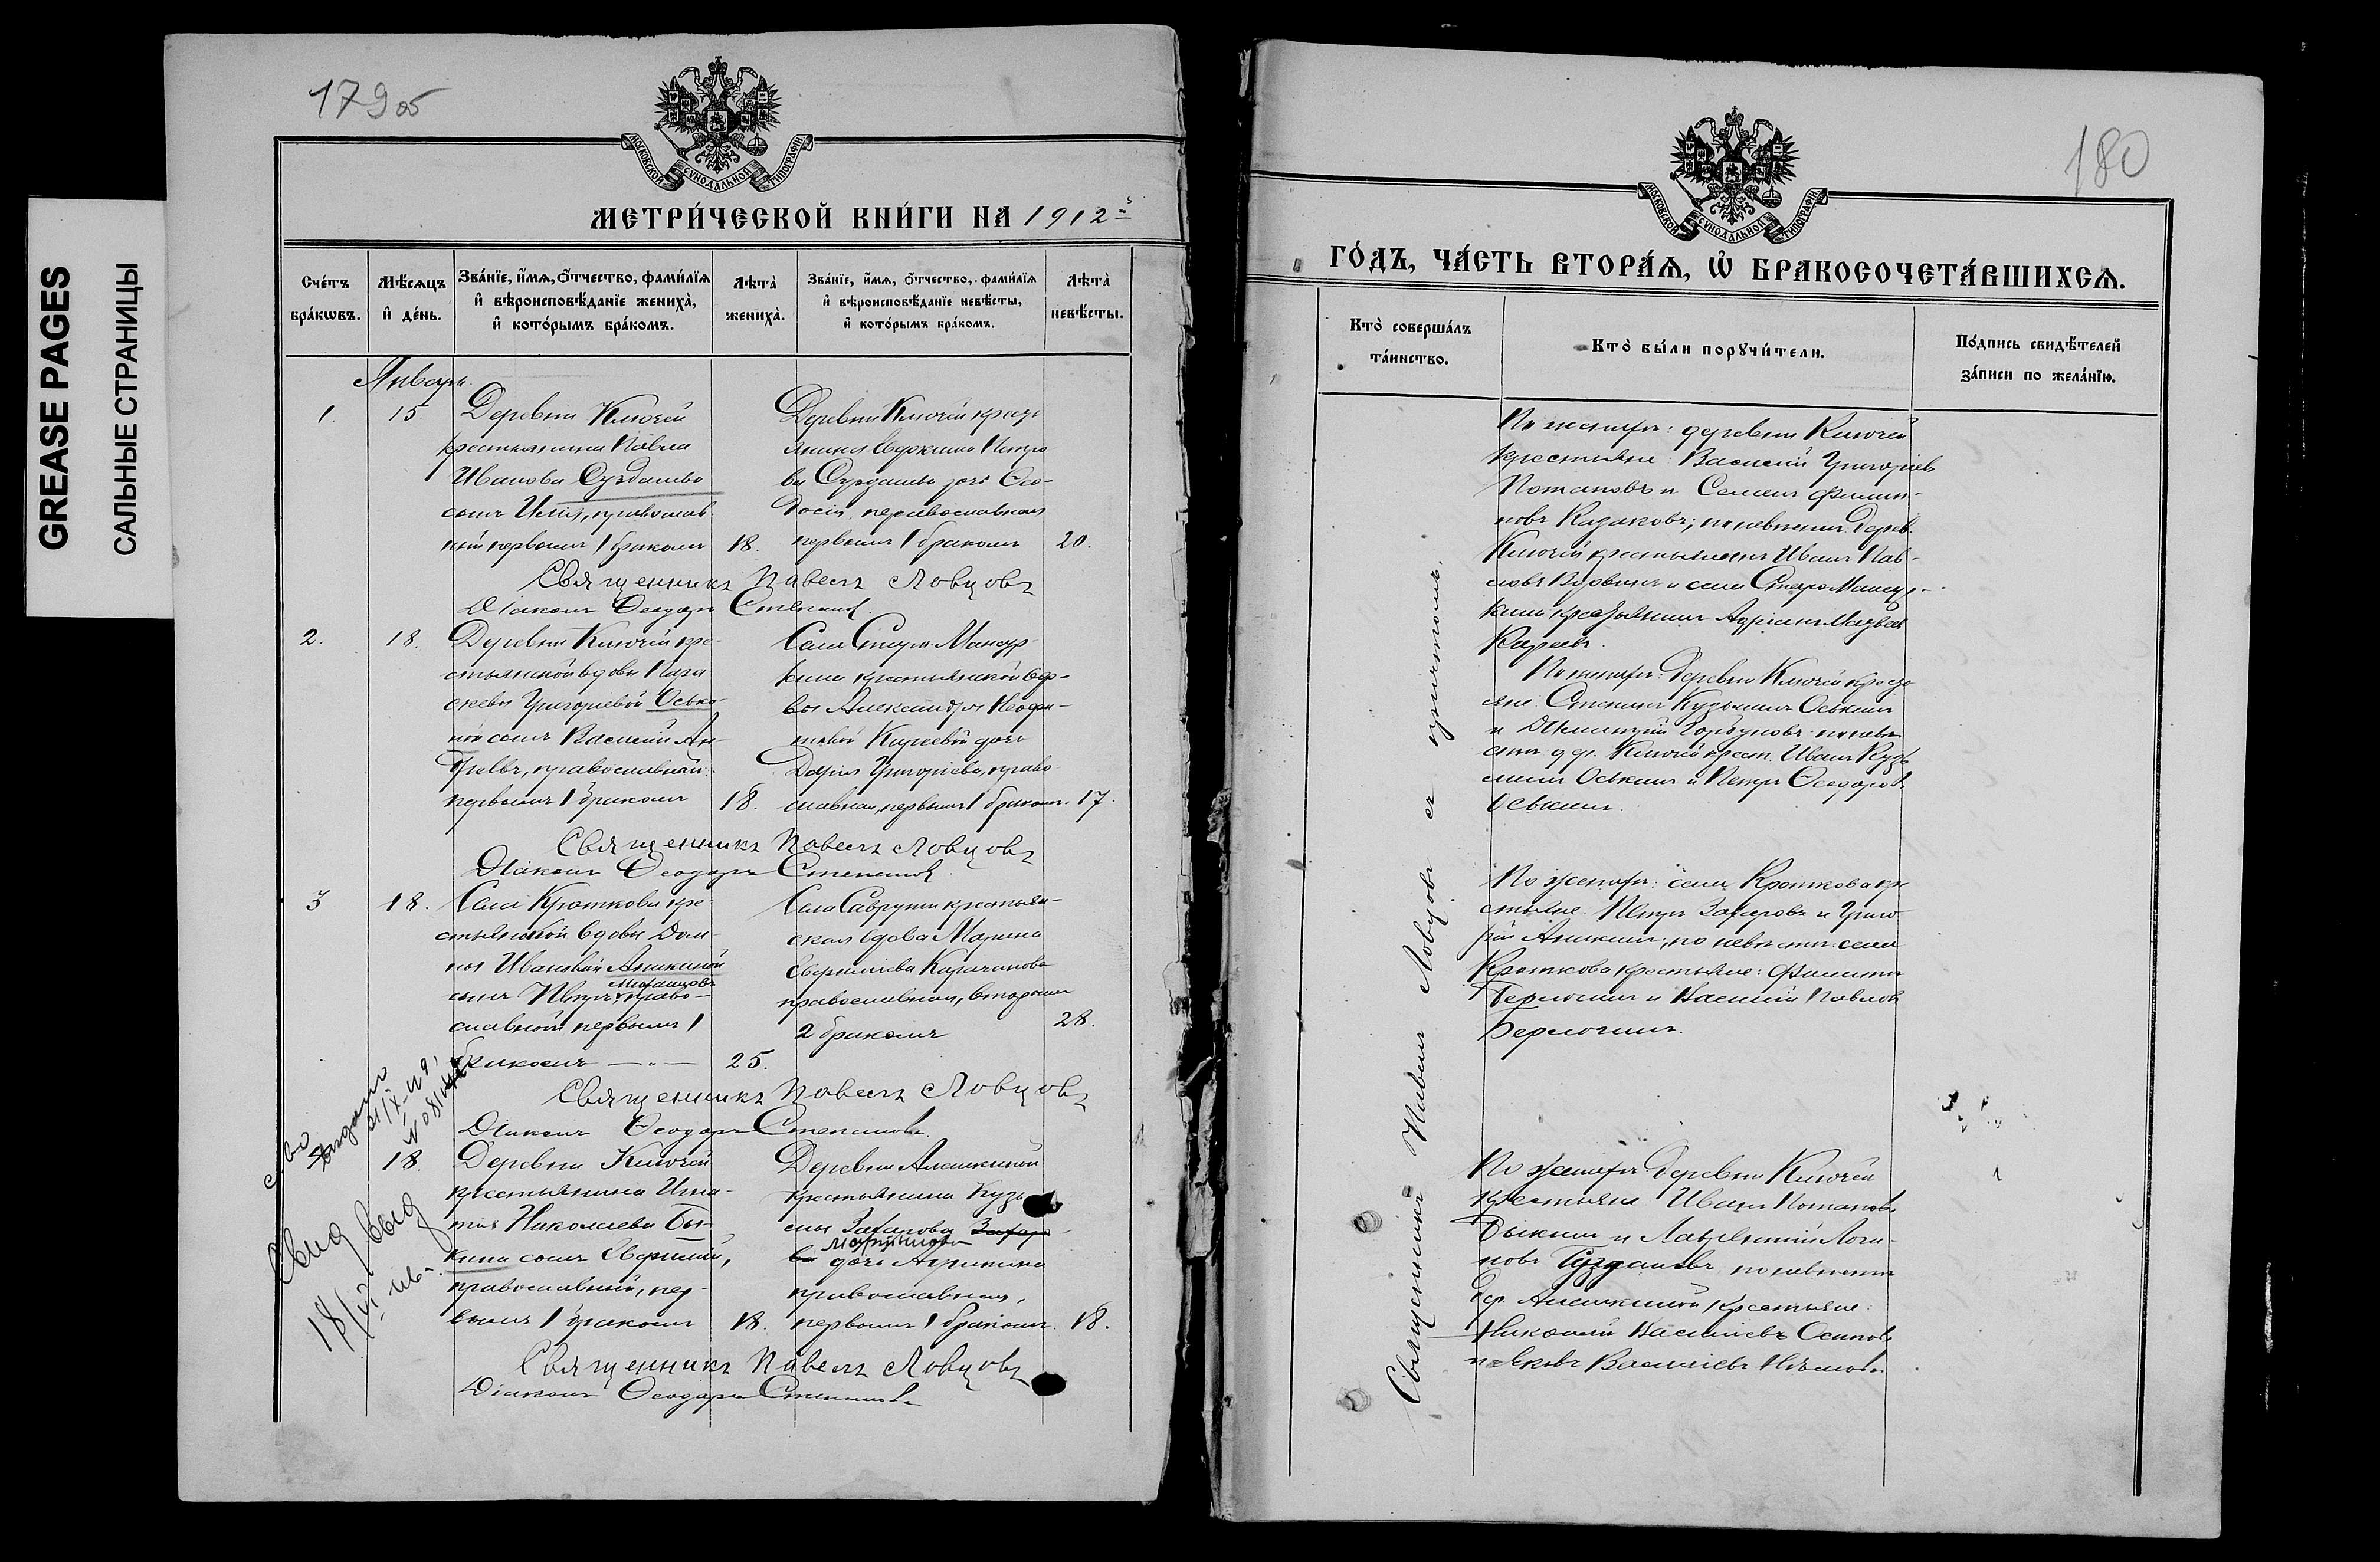 GREASE PAGES
САЛЬНЫЕ СТРАНИЦЫ
179 об
МОСКОВСКОЙ СѴНОДАЛЬНОЙ ТИПОГРАФІИ
МЕТРИ́ЧЕСКОЙ КНИ́ГИ НА 1912й
Сче́тъ бра́кѡвъ.
Мѣ́сѧцъ и҆ де́нь.
Зва́нїе, и҆́мѧ, ѻ҆́тчество, фами́лїѧ
и҆ вѣроисповѣ́данїе жениха̀,
и҆ кото́рымъ бра́комъ.
Лѣта̀ жениха̀.
Зва́нїе, и҆́мѧ, ѻ҆́тчество, фами́лїѧ
и҆ вѣроисповѣ́данїе невѣ́сты,
и҆ кото́рымъ бра́комъ.
Лѣта̀ невѣ́сты.
Январь
1. 15
Деревни Ключей
крестьянина Павла
Иванова Суздалева
сынъ Илія, православ-
ный первымъ 1 бракомъ 18.
Деревни Ключей кресть
янина Евдокима Петро
ва Суздалева дочь Ѳео-
досія православная
первымъ 1 бракомъ 20.
Священникъ Павелъ Ловцовъ
Діаконъ Ѳеодоръ Степановъ.
2. 18.
Деревни Ключей кре-
стьянской вдовы Пара
скевы Григоріевой Оськи
ной сынъ Василій Ан-
дреевъ, православный
первымъ 1 бракомъ 18.
Села Стараго Мансур
кина крестьянской вдо-
вы Александры Неофи-
товой Киреевой дочь
Дарія Григоріева, право
славная, первымъ 1 бракомъ. 17.
Священникъ Павелъ Ловцовъ
Діаконъ Ѳеодоръ Степановъ
3 18.
Села Кроткова кре-
стьянской вдовы Дом-
ны Ивановой Аникиной
сынъ Петръ, право-
славный первымъ 1
бракомъ — „ — 25.
Села Савруши крестьян-
ская вдова Марина
православная, вторымъ
2 бракомъ 28.
Священникъ Павелъ Ловцовъ
Діаконъ Ѳеодоръ Степановъ.
18.
Деревни Ключей
крестьянина Игна-
тія Николаева Бы-
кина сынъ Евфимій,
православный, пер-
вымъ 1 бракомъ 18.
Деревни Алешкиной
крестьянина Кузь
мы Захарова Захаро
Мартынова
ва дочь Агрипина
православная,
первымъ 1 бракомъ. 18.
Священникъ Павелъ Ловцовъ
Діаконъ Ѳеодоръ Степановъ
180
МОСКОВСКОЙ СѴНОДАЛЬНОЙ ТИПОГРАФІИ
ГО́ДЪ, ЧА́СТЬ ВТОРА́Ѧ, Ѡ҆ БРАКОСОЧЕТА́ВШИХСѦ.
Кто̀ соверша́лъ та́инство.
Кто̀ бы́ли порꙋчи́тели.
По́дпись свидѣ́телей за́писи по жела́нїю.
Священникъ Павелъ Ловцовъ съ причтомъ.
По женихѣ: деревни Ключей
крестьяне: Василій Григоріев
Потаповъ и Семенъ Филип-
повъ Казаковъ; по невѣстѣ Дерев.
Ключей крестьяне Иванъ Пав-
ловъ и села Старо Мансур-
кина крестьянинъ Адріанъ
Киреевъ.
По женихѣ: Деревни Ключей кресть
яне: Степанъ Кузьминъ Оськинъ
и Димитрій Горбуновъ по невѣ
стѣ д. Ключей крест. Иванъ Кузь
минъ Оськинъ и Петръ Ѳеодоров
Оськинъ.
По женихѣ: села Кроткова кре
стьяне: Петръ Захаровъ и Григо-
рій Аникинъ; по невѣстѣ: села
Кроткова крестьяне: Филиппъ
и Василій Павлов
По женихѣ деревни Ключей
крестьяне Иванъ Потаповъ
Быкинъ и Лаврентій Логи-
новъ по невѣстѣ
дер. Алешкиной крестьяне:
Николай Васильевъ Осиповъ
и Яковъ Васильевъ